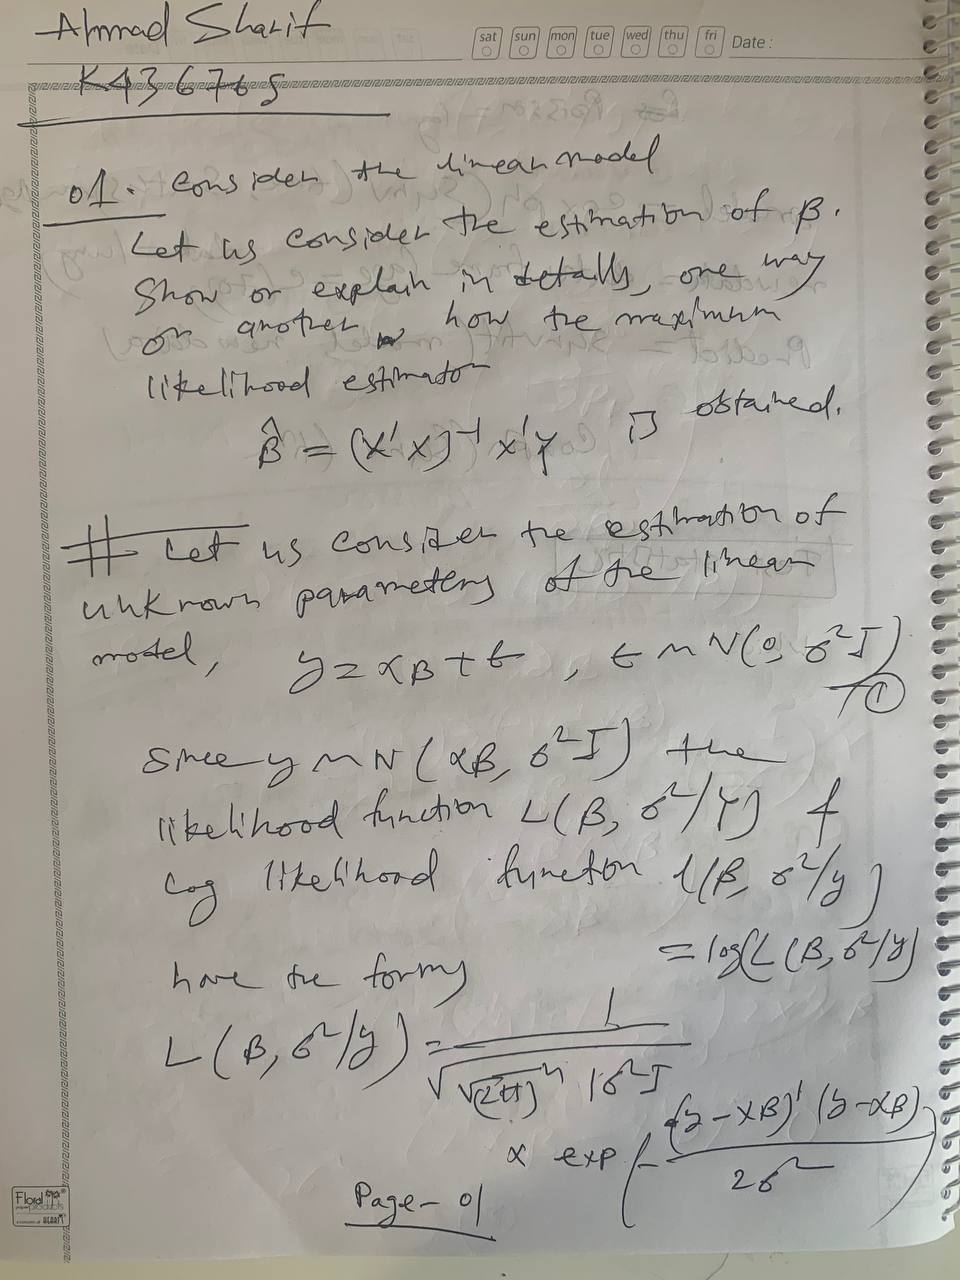 Ahmad Sharif
K436765
sat sun mon tue wed thu fri Date:
01. Consider the linear model
Let us consider the estimation of β.
Show or explain in details, one way
or another, how the maximum
likelihood estimator
β̂ = (X'X)⁻¹ X'y is obtained.
# Let us consider the estimation of
unknown parameters of the linear
model, y = xβ + ε, ε ~ N(0, σ²I)
①
Since y ~ N(xβ, σ²I) the
likelihood function L(β, σ²/y) &
log likelihood function l(β, σ²/y)
= log(L(β, σ²/y)
have the forms
L(β, σ²/y) = 1 / √√(2π)ⁿ |σ²I
x exp(- (y-xβ)' (y-xβ) / 2σ²)
Page-01
Floral
products